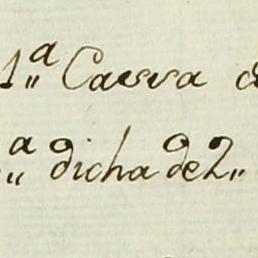 1ª Caussa d
ª dicha de 2